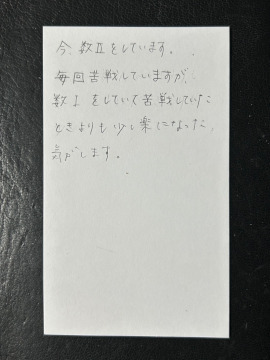 今、数Ⅱをしています。
毎回苦戦していますが、
数Ⅰをしていて苦戦していた
ときよりも少し楽になった
気がします。